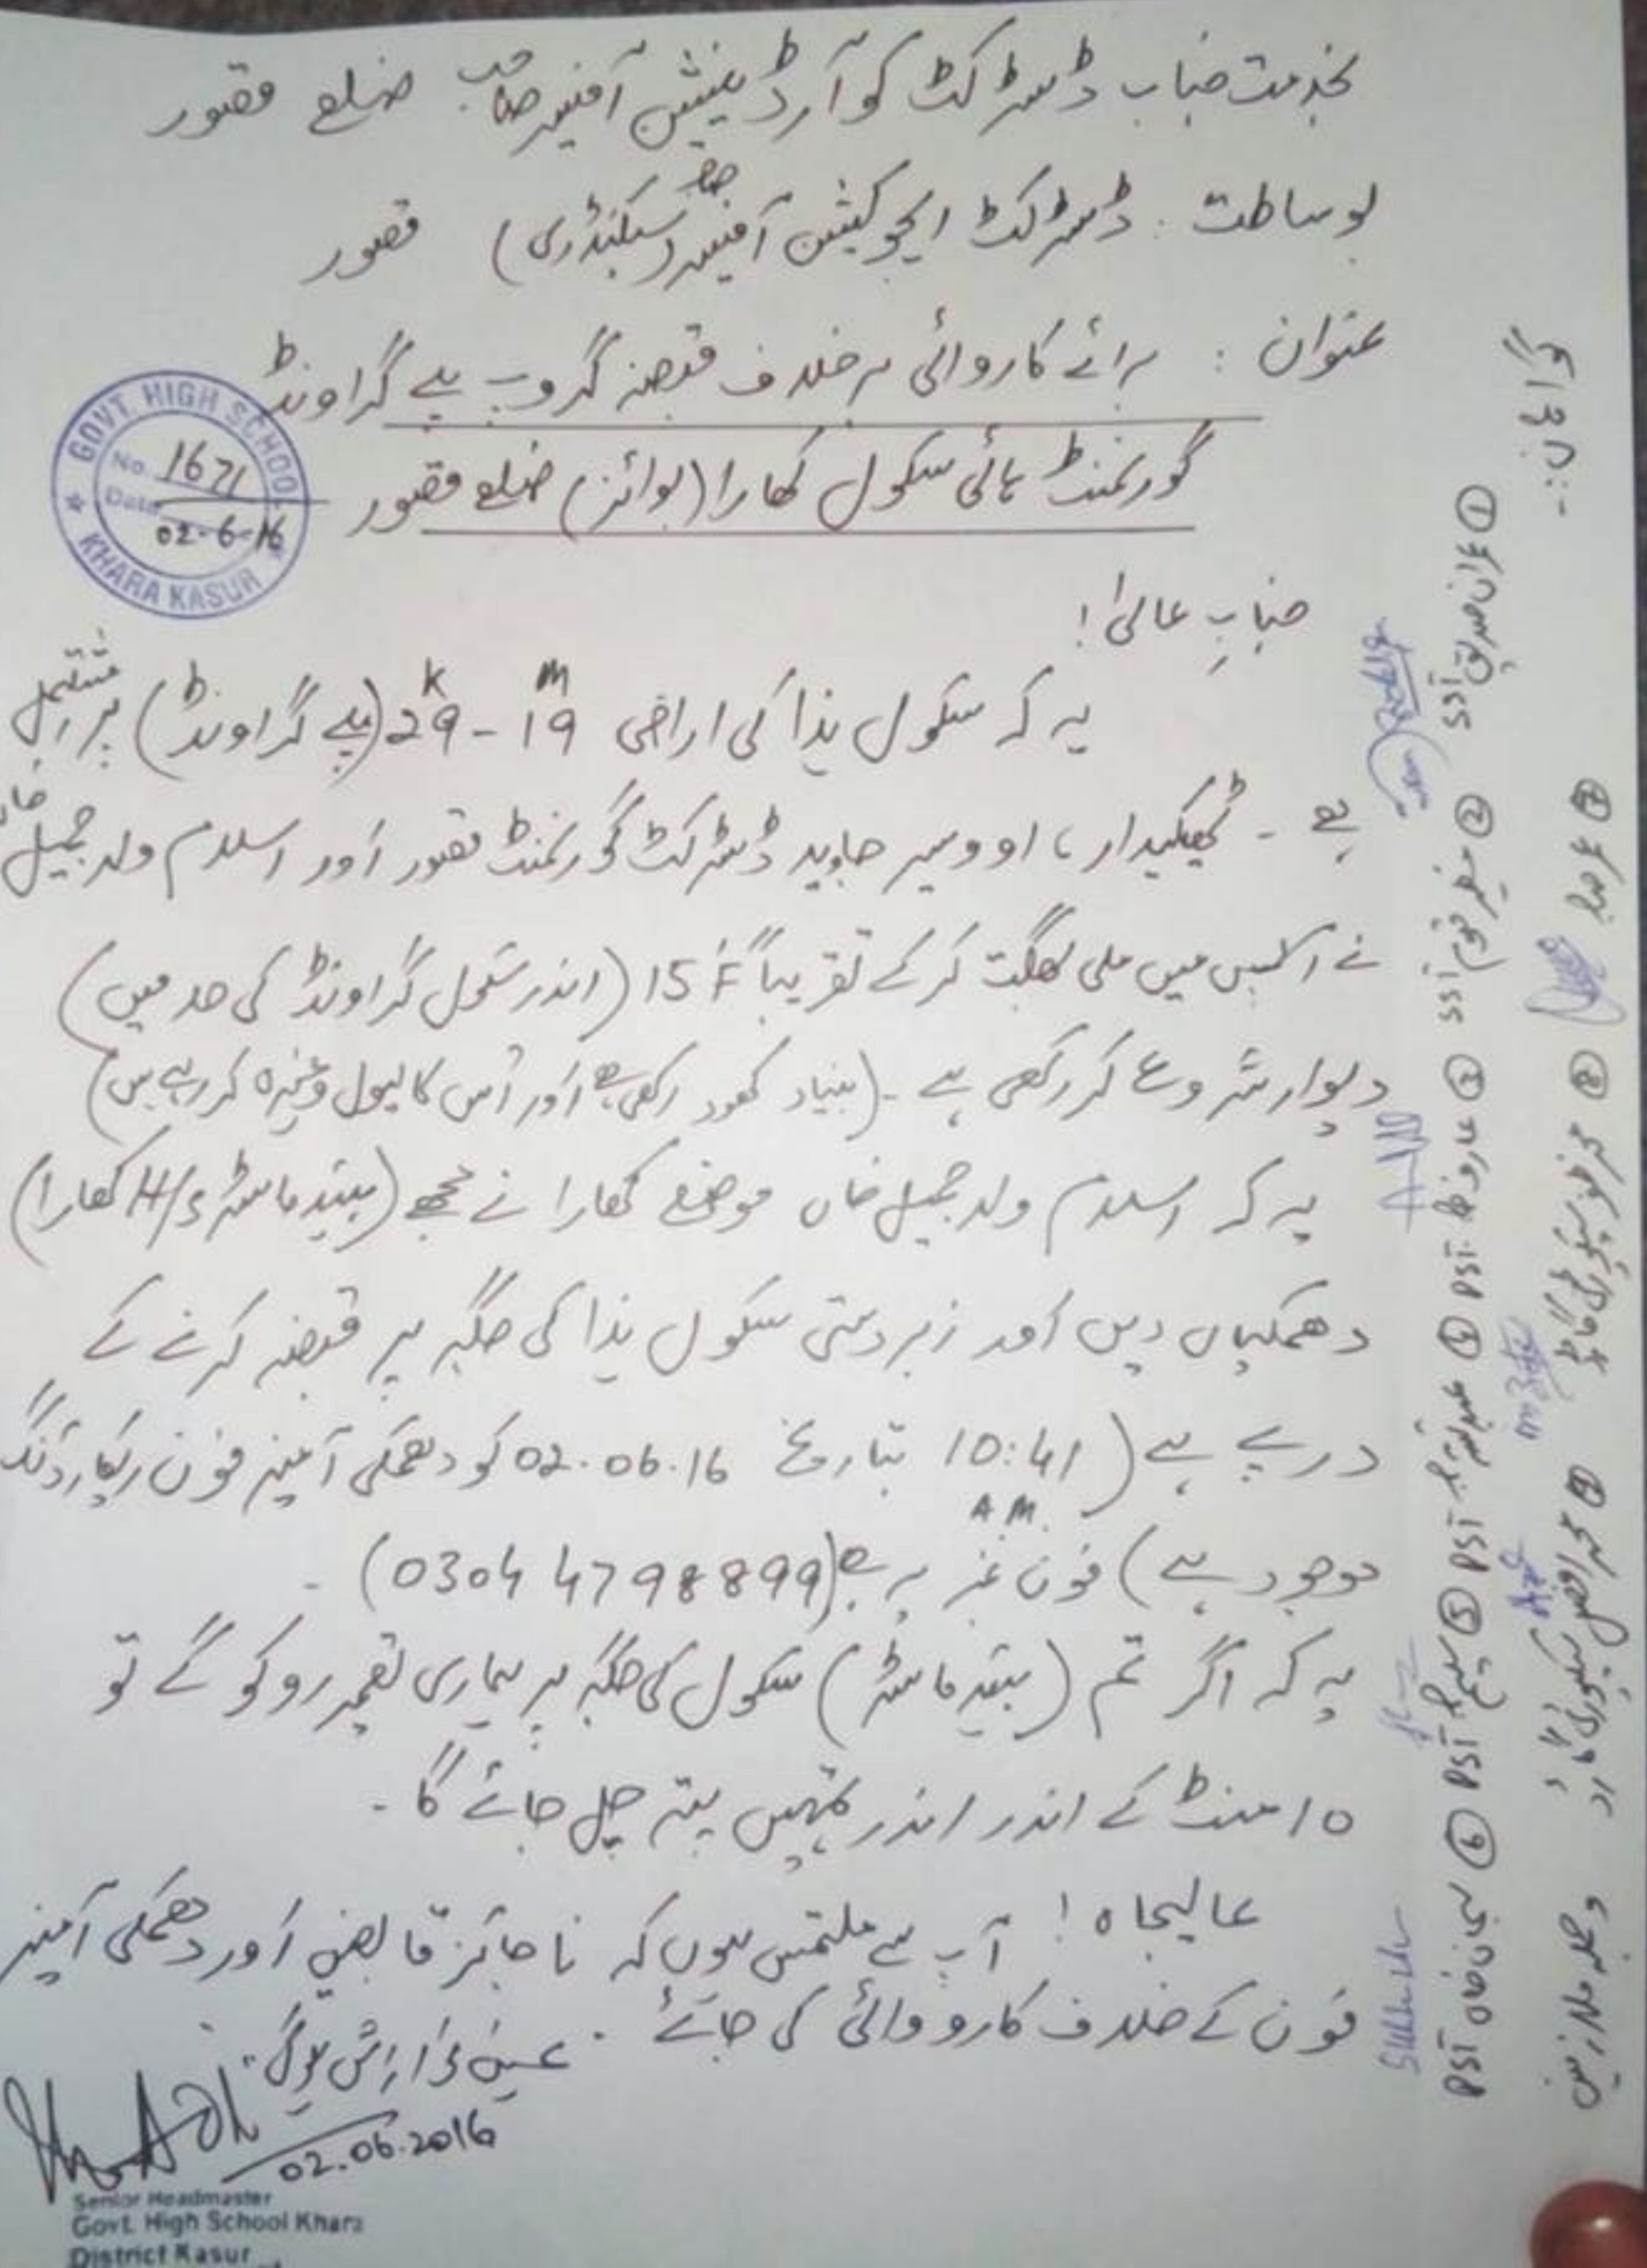 بخدمت جناب ڈسٹرکٹ کوآرڈینیشن آفیسر صاحب ضلع قصور
بوساطت : ڈسٹرکٹ ایجوکیشن آفیسر صاحب (سیکنڈری) قصور
عنوان : برائے کاروائی برخلاف قبضہ گروپ پلے گراونڈ
گورنمنٹ ہائی سکول کھارا (بوائز) ضلع قصور
GOVT. HIGH SCHOOL
No. 1671
Date 02-6-16
KHARA KASUR
جناب عالیٰ!
یہ کہ سکول ہذا کی اراضی 29K - 19M (پلے گراونڈ) پر مشتمل
ہے - ٹھیکیدار، اوورسیر جاوید ڈسٹرکٹ گورنمنٹ قصور اور اسلام ولد جمیل خاں
نے آپس میں ملی بھگت کرکے تقریباً 15 F (اندر سکول گراونڈ کی حد میں)
دیوار شروع کر رکھی ہے - (بنیاد کھود رکھی ہے اور اُس کا لیول وغیرہ کر رہے ہیں)
یہ کہ اسلام ولد جمیل خاں موضع کھارا نے مجھے (ہیڈ ماسٹر H/S کھارا)
دھمکیاں دیں اور زبردستی سکول ہذا کی جگہ پر قبضہ کرنے کے
درپے ہے (10:41 A.M. بتاریخ 02.06.16 کو دھمکی آمیز فون ریکارڈنگ
موجود ہے) فون نمبر یہ ہے (0304 4798899) -
یہ کہ اگر تم (ہیڈ ماسٹر) سکول کی جگہ پر ہماری تعمیر روکو گے تو
10 منٹ کے اندر اندر تمہیں پتہ چل جائے گا -
عالیجاہ! آپ سے ملتمس ہوں کہ ناجائز قابضین اور دھمکی آمیز
فون کے خلاف کارووائی کی جائے . عین نوازش ہوگی.
02.06.2016
Senior Headmaster
Govt. High School Khara
District Kasur
گواہان :-
① عمران صدیق SST
② SST
③ PST
④ PST
⑤ PST
⑥ سبحان خاں PST
⑦
⑧ سیکیورٹی گارڈ
⑨ محمد افضل سیکیورٹی گارڈ
و جملہ ملازمین